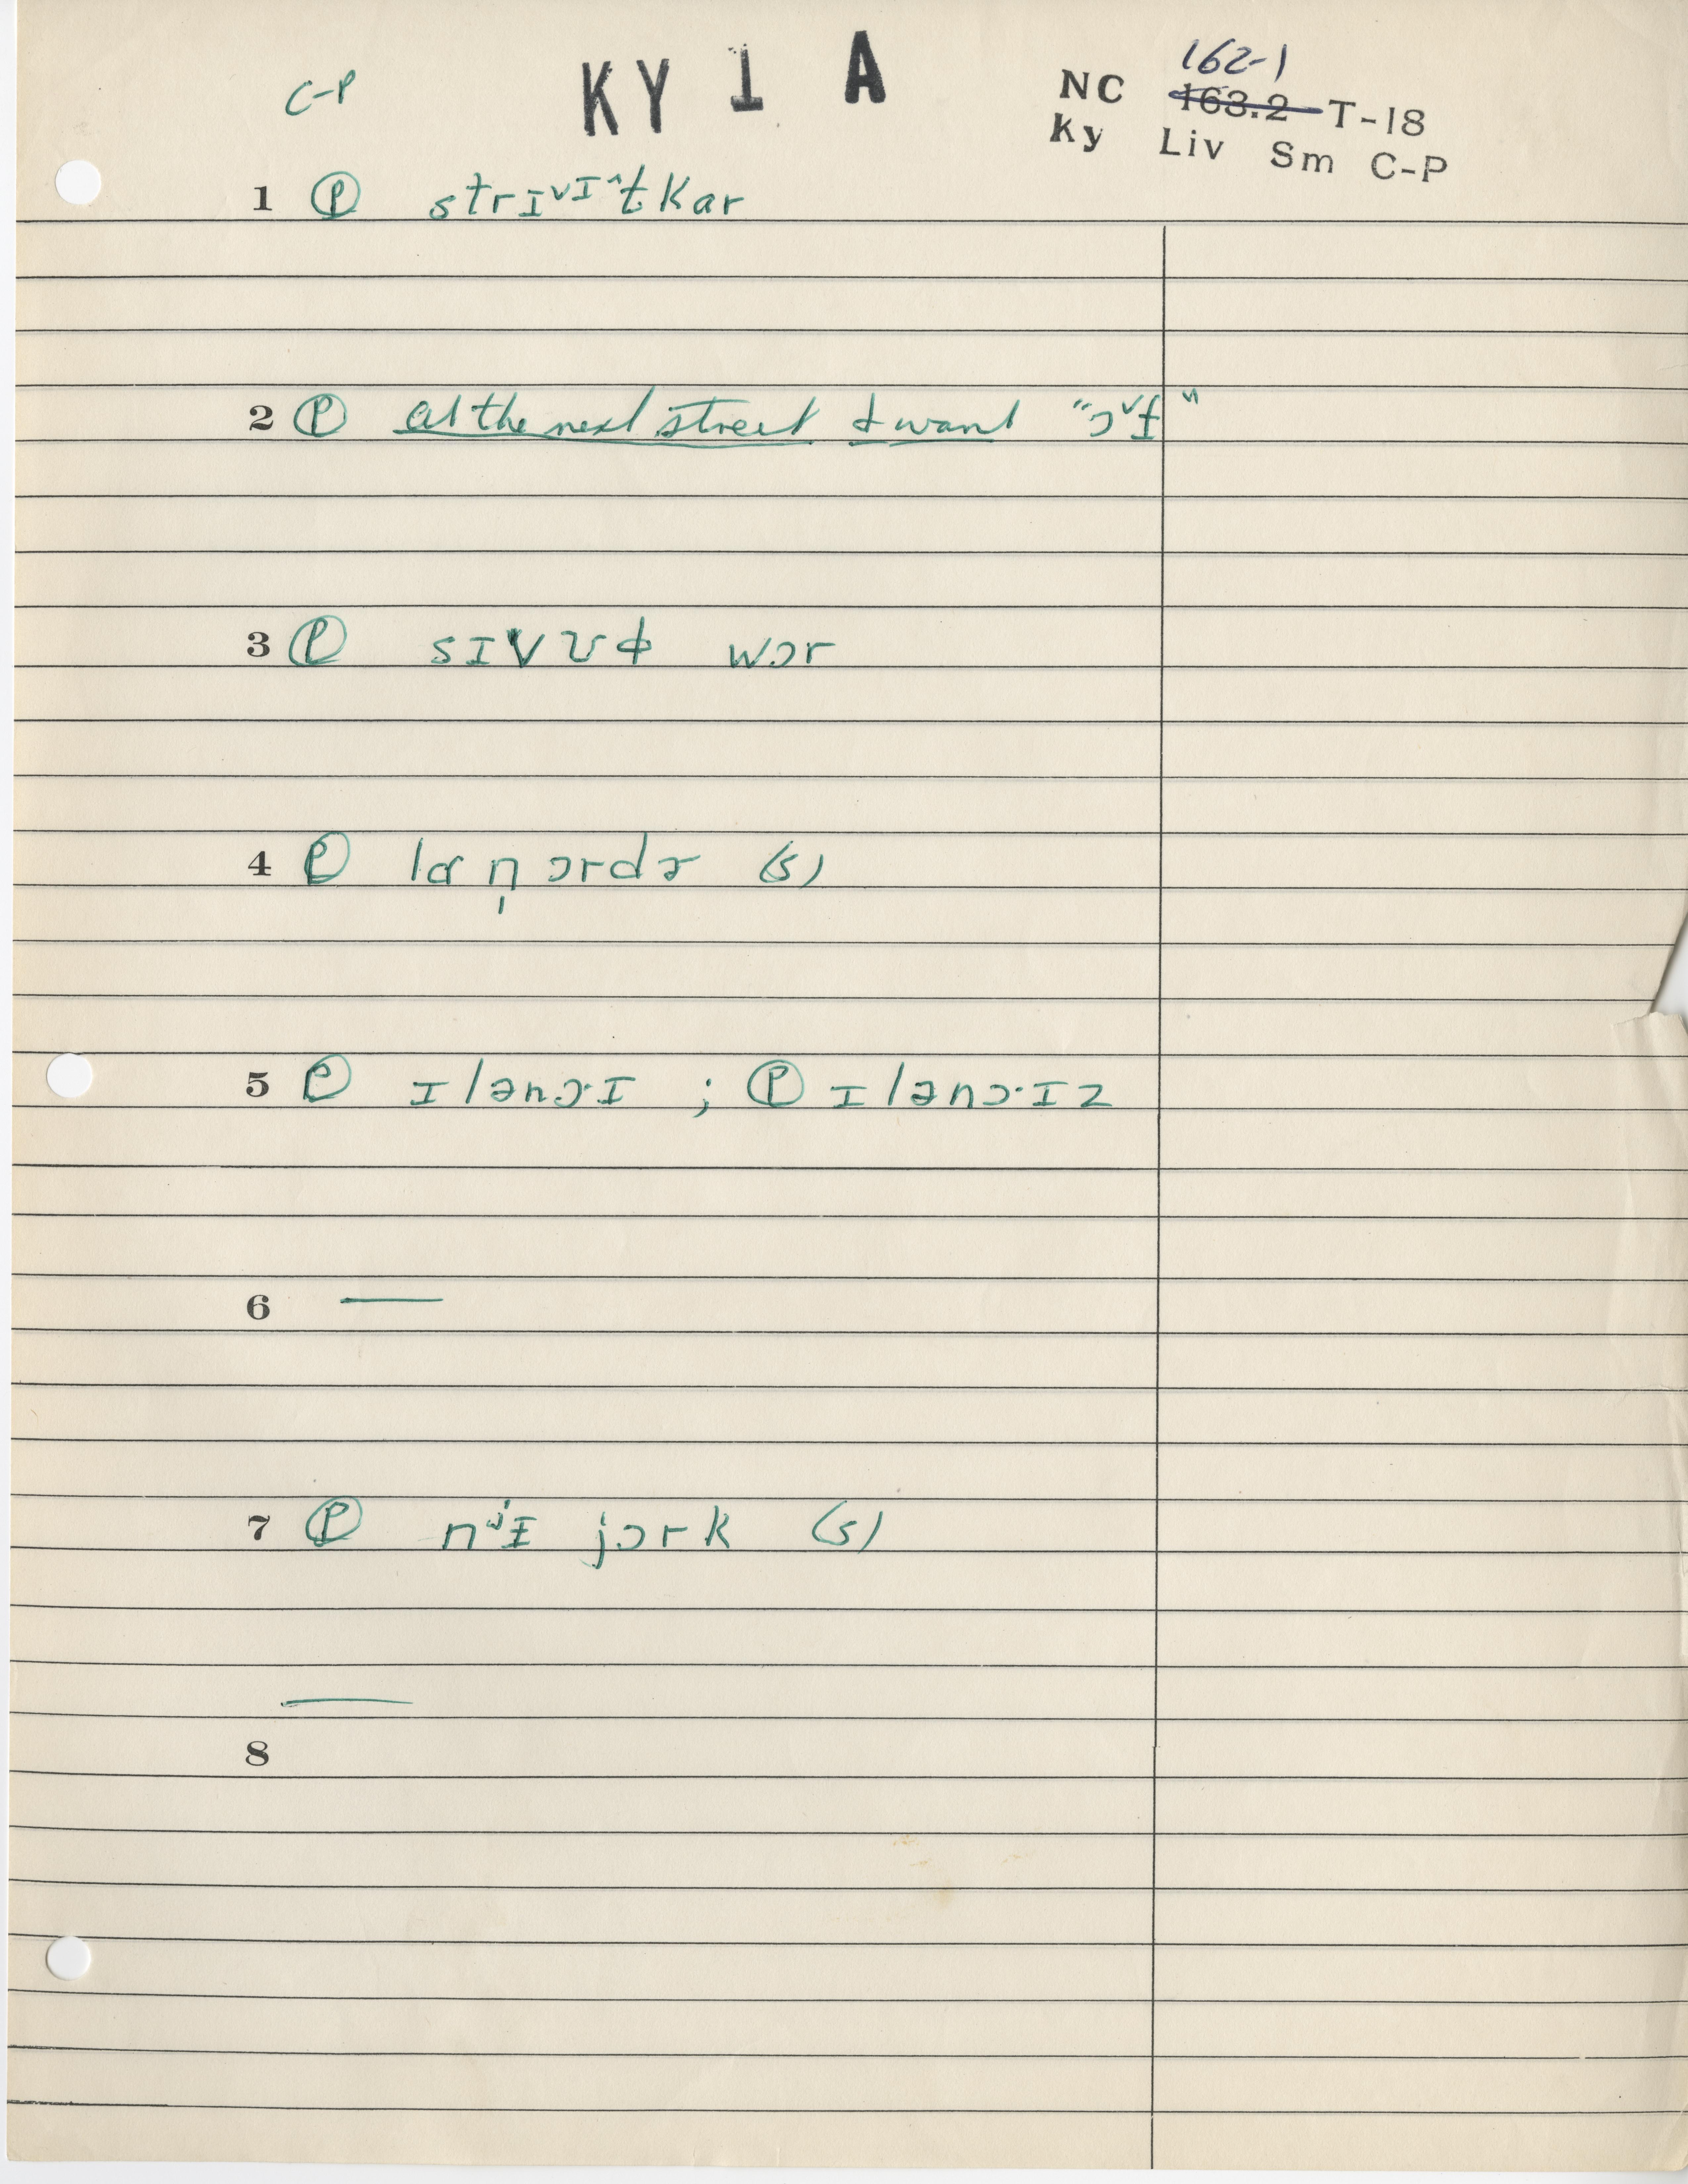 C-P
KY 1 A
162-1
NC 163.2 T-18
Ky Liv Sm C-P
1 Ⓟ strɪᵛɪ^t kar
2 Ⓟ at the next street I want "ɔᵛɨ"
3 Ⓟ sɪvʊɫ wɔr
4 Ⓟ lɑn̩ ɔrdɚ (s)
5 Ⓟ ɪlənɔ·ɪ ; Ⓟ ɪlənɔ·ɪz
6 —
7 Ⓟ nʲɨ jɔrk (s)
—
8